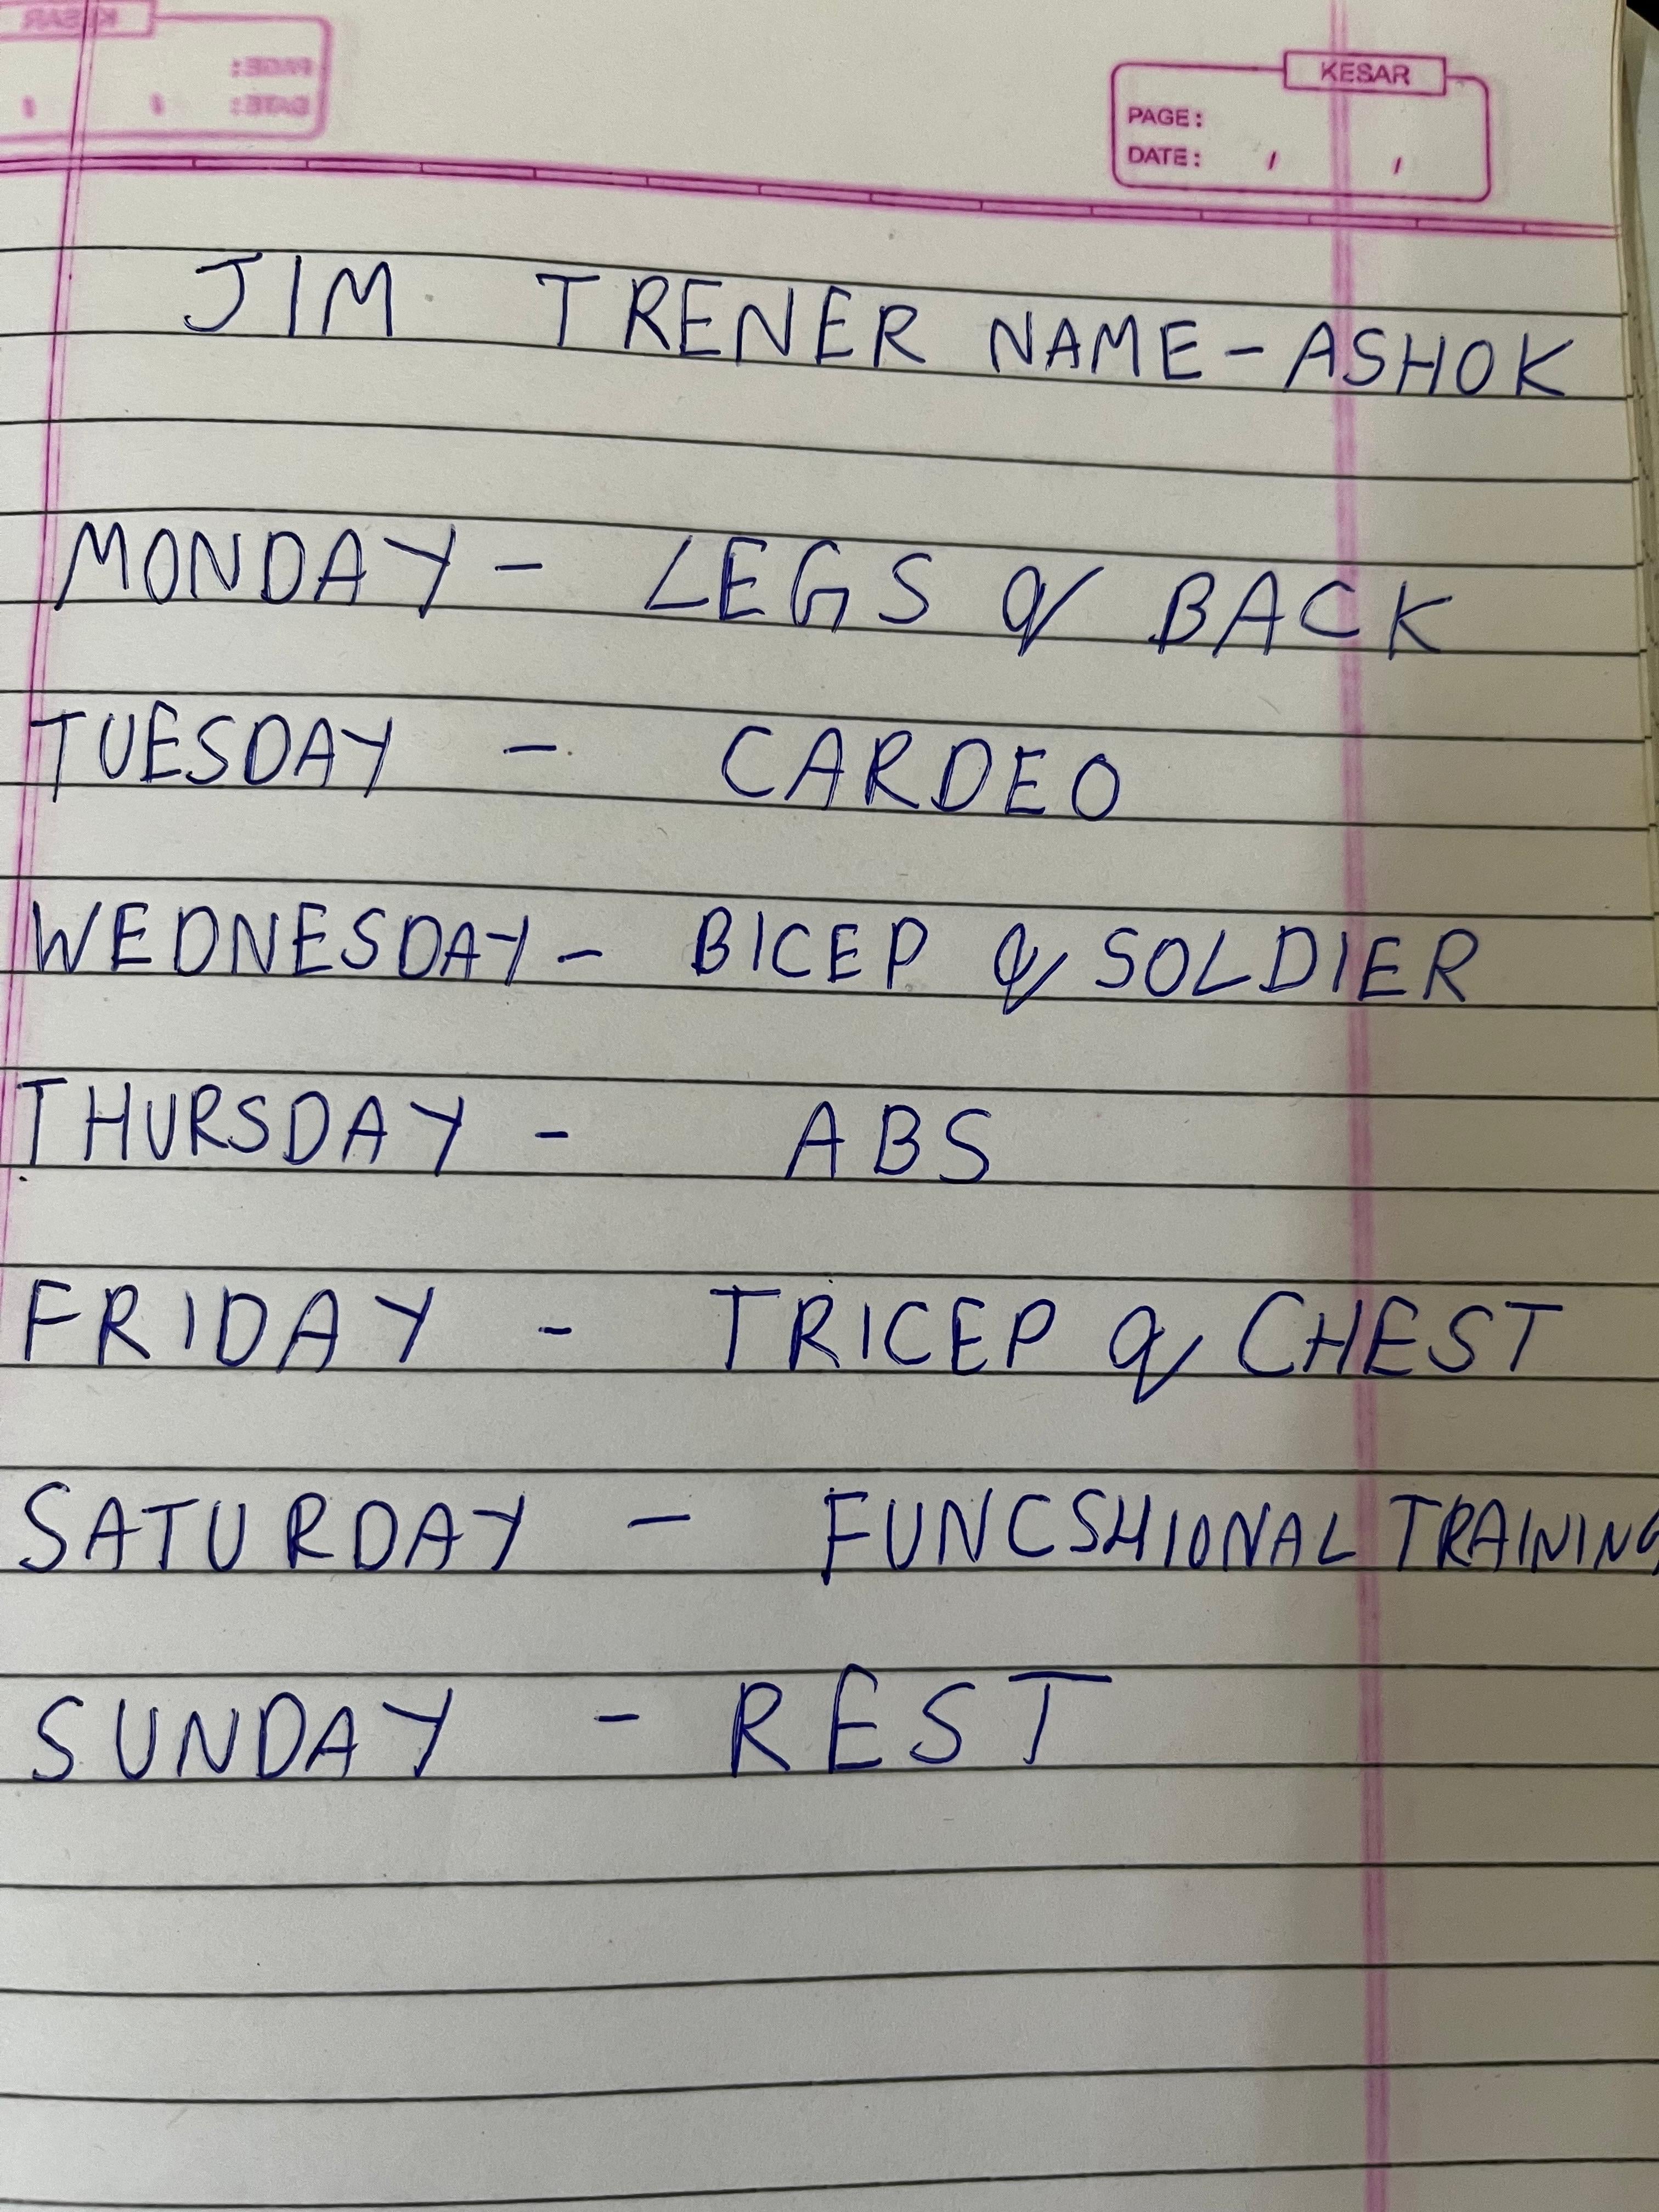 KESAR
PAGE:
DATE: / /
KESAR
PAGE:
DATE: / /
JIM TRENER NAME - ASHOK
MONDAY - LEGS & BACK
TUESDAY - CARDEO
WEDNESDAY - BICEP & SOLDIER
THURSDAY - ABS
FRIDAY - TRICEP & CHEST
SATURDAY - FUNCSHIONAL TRAINING
SUNDAY - REST